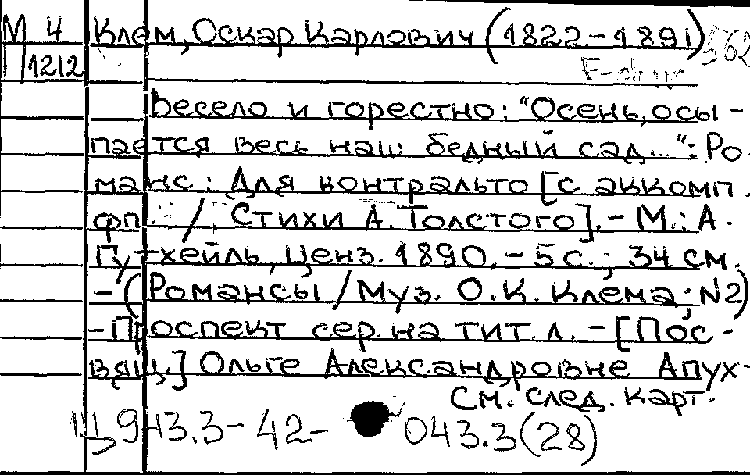 М 4 Клем, Оскар Карлович (1822-1891)
П 1212
Весело и горестно: "Осень, осы-
пается весь наш бедный сад...": Ро-
манс: Для контральто [с аккомп.
фп. / Стихи А. Толстого]. - М.: А.
Гутхейль, ценз. 1890. - 5 с.; 34 см.
- (Романсы / Муз. О.К. Клема; N2)
- Проспект сер. на тит. л. - [Пос-
вящ.] Ольге Александровне Апух-
См. след. карт.
Ц943.3-42- 043.3(28)